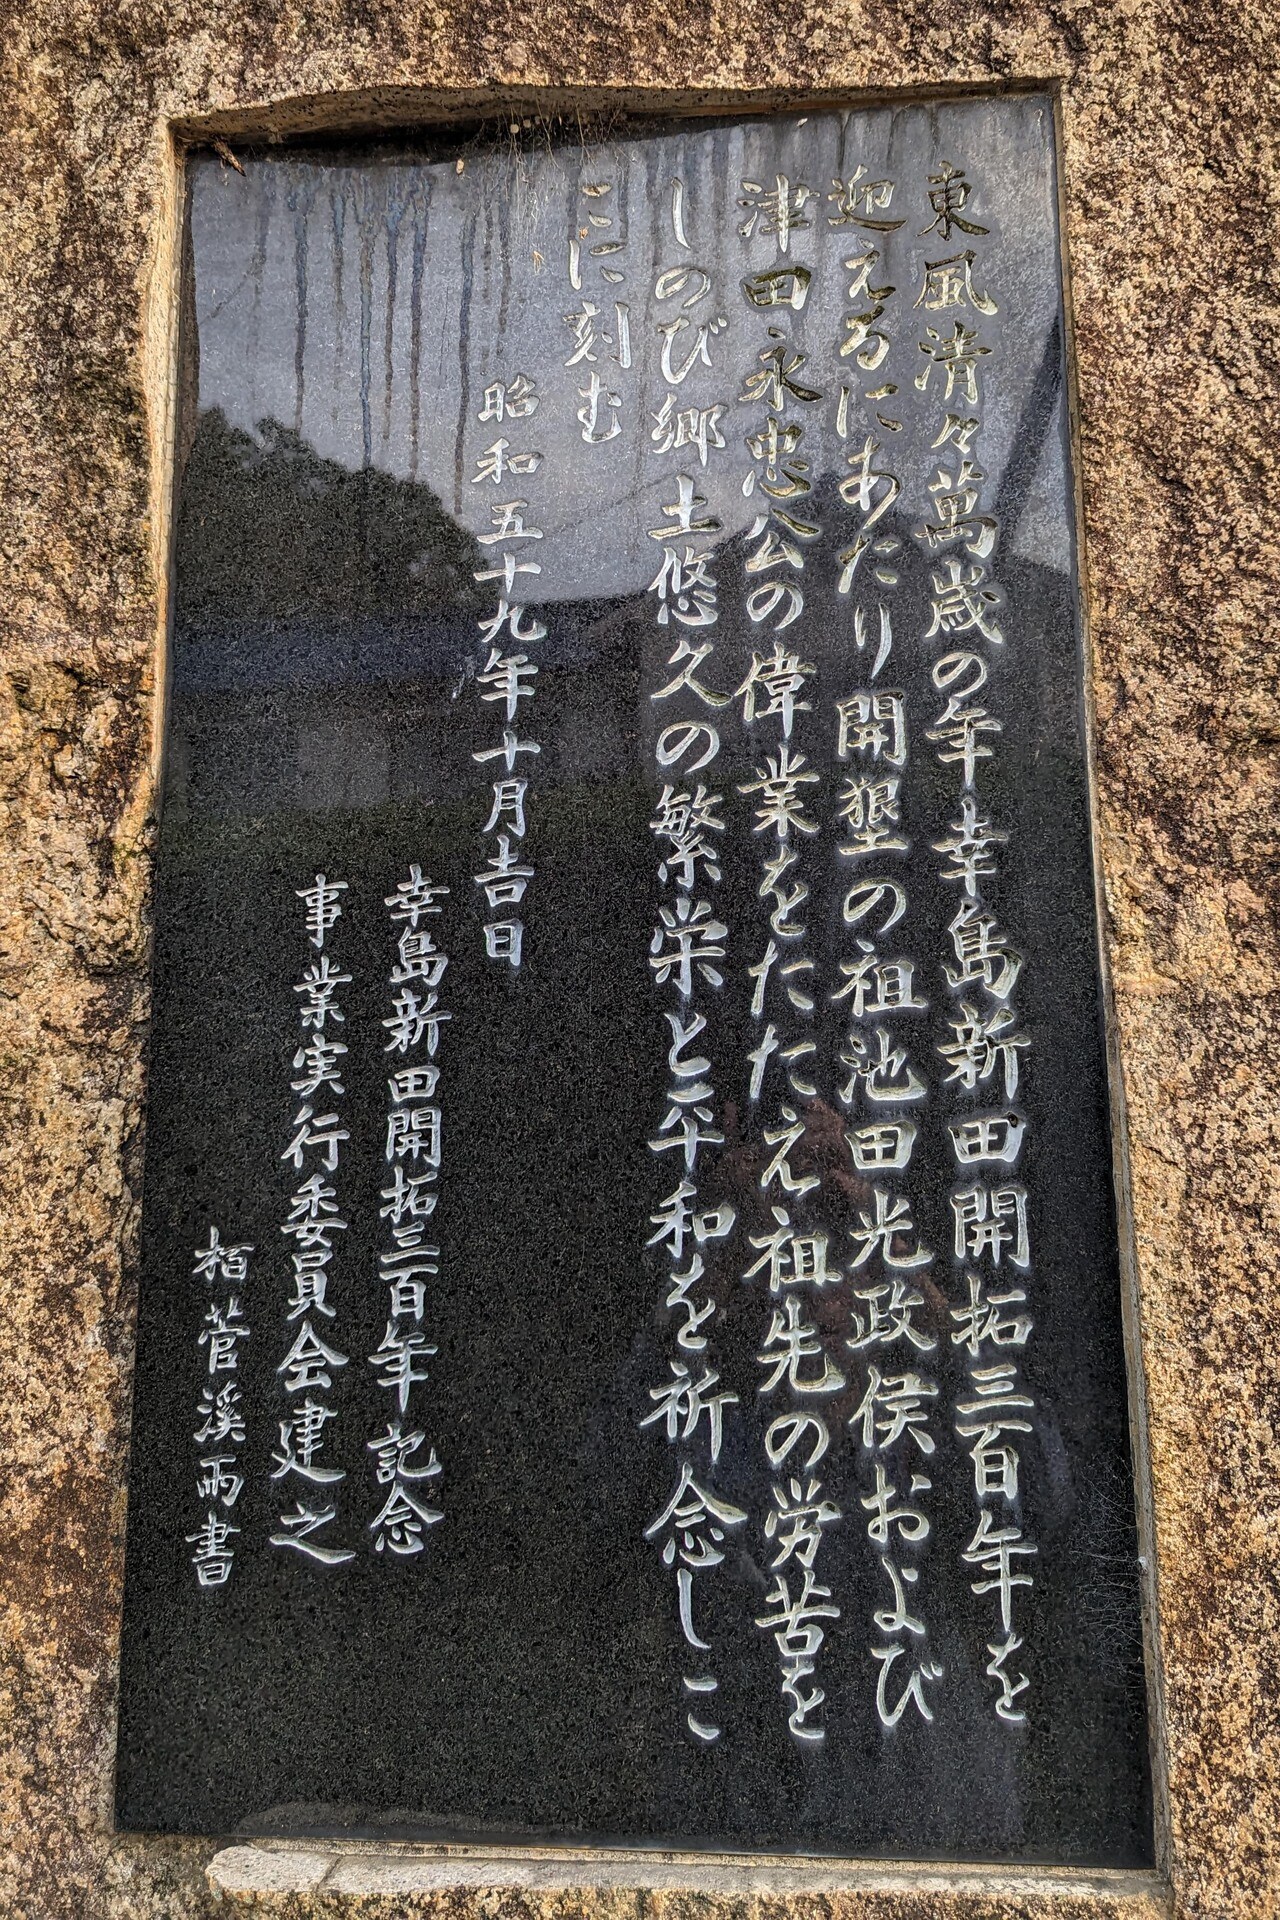 東風清々萬歳の年幸島新田開拓三百年を
迎えるにあたり開墾の祖池田光政侯および
津田永忠公の偉業をたたえ祖先の労苦を
しのび郷土悠久の繁栄と平和を祈念しこ
こに刻む
昭和五十九年十月吉日
幸島新田開拓三百年記念
事業実行委員会建之
栢菅溪雨書